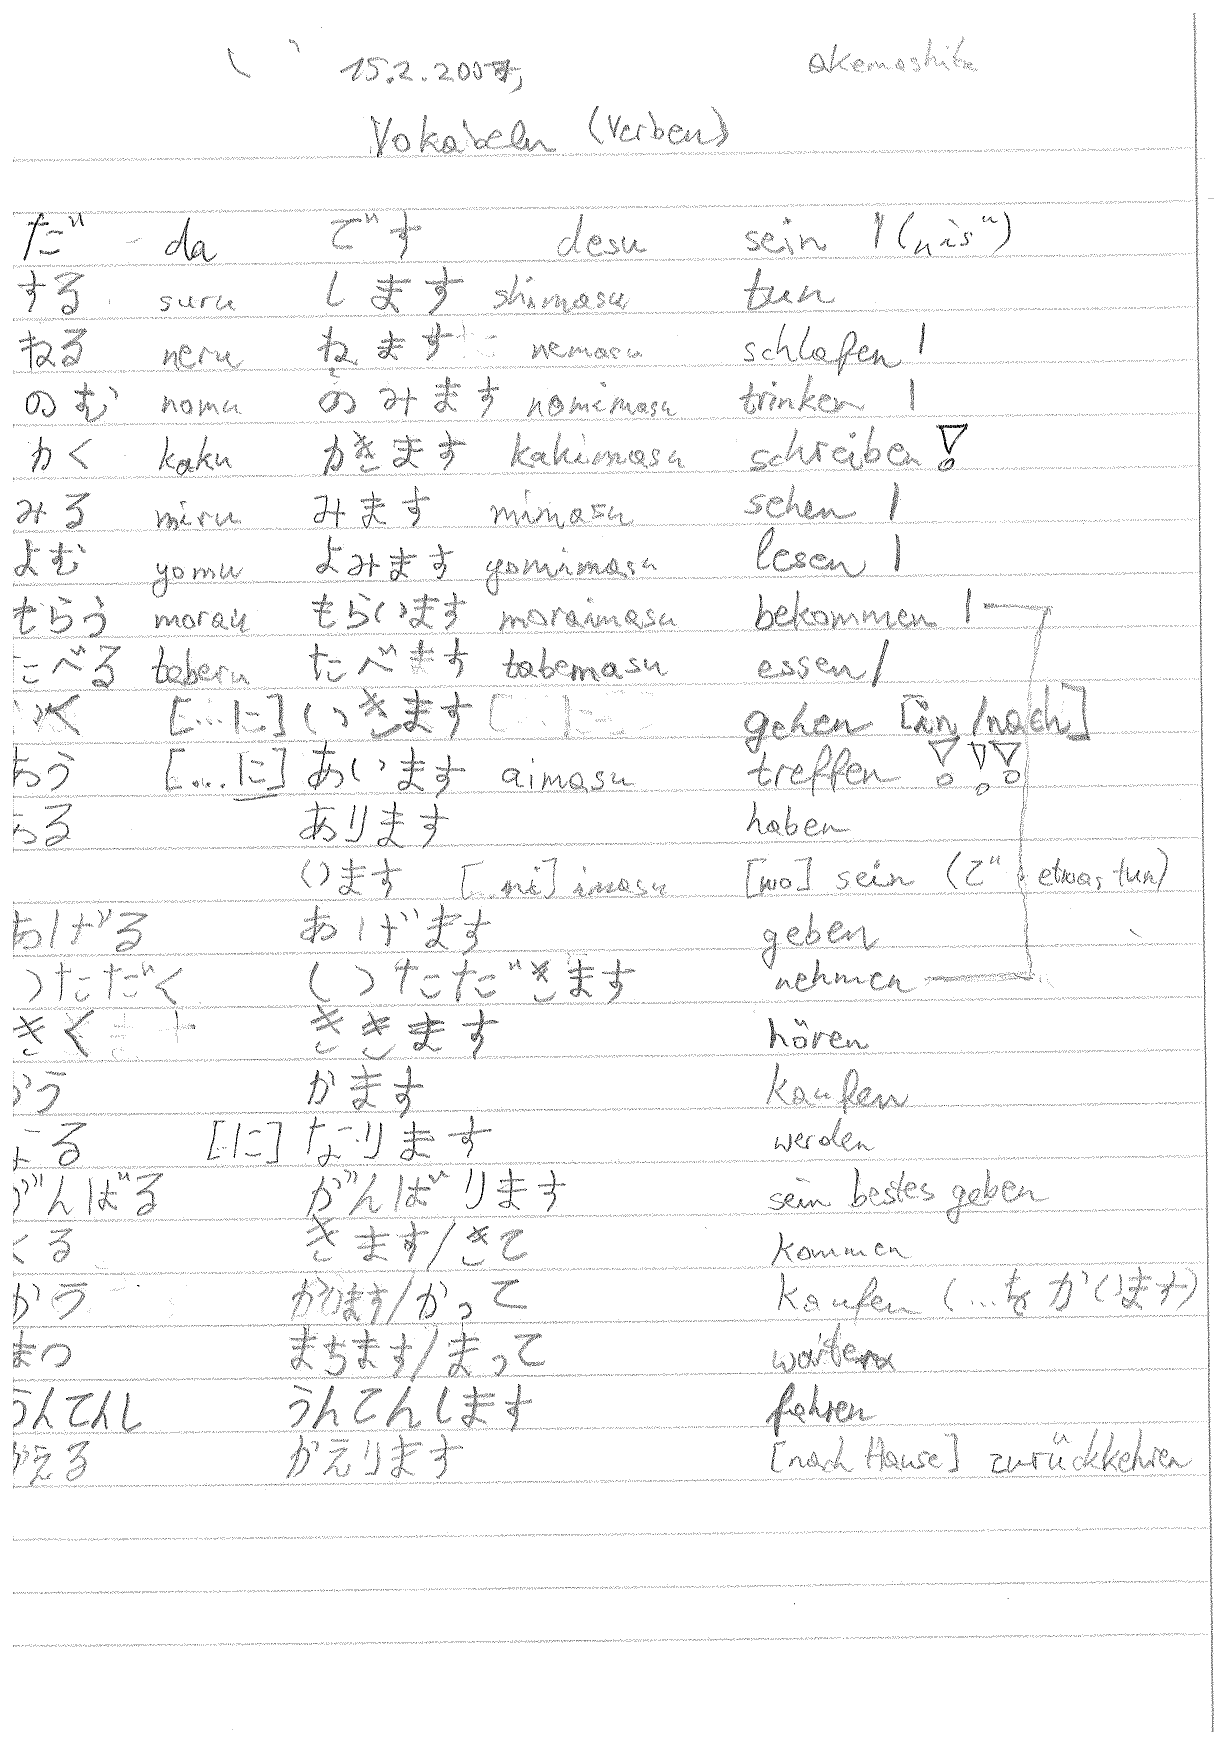 15.2.2007, akemashita
Vokabeln (Verben)
だ da です desu sein ("is")
する suru します shimasu tun
ねる neru ねます nemasu schlafen !
のむ nomu のみます nomimasu trinken !
かく kaku かきます kakimasu schreiben !
みる miru みます mimasu sehen !
よむ yomu よみます yomimasu lesen !
もらう morau もらいます moraimasu bekommen !
たべる taberu たべます tabemasu essen !
いく [...に] いきます gehen [in/nach]
あう [...に] あいます aimasu treffen !!!
ある あります haben
います [..ni] imasu [wo] sein (で etwas tun)
あげる あげます geben
いただく いただきます nehmen
きく ききます hören
かう かます kaufen
なる [に] なります werden
がんばる がんばります sein bestes geben
くる きます/きて kommen
かう かいます/かって kaufen (...を かいます)
まつ まちます/まって warten
うんてんし うんてんします fahren
かえる かえります [nach Hause] zurückkehren